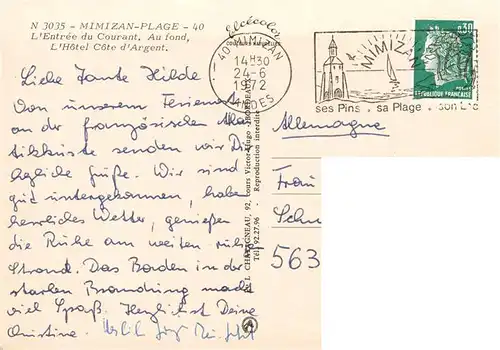 N 3035 - MIMIZAN-PLAGE - 40
L'Entrée du Courant. Au fond,
L'Hôtel Côte d'Argent.
elcécolor
COULEURS NATURELLES
40 MIMIZAN
14H30
24-6
1972
LANDES
MIMIZAN
ses Pins . sa Plage . son Lac
0.30
REPUBLIQUE FRANÇAISE
Liebe Tante Hilde
Von unserem Ferienort
an der französischen Atlan
tikküste senden wir Dir
herzliche Grüße. Wir sind
gut untergekommen, haben
herrliches Wetter, genießen
die Ruhe am weiten
Strand. Das Baden in der
starken Brandung macht
viel Spaß. Herzlichst Deine
Christine.
Allemagne
Frau
Schu
563
CHATAGNEAU, 92, cours Victor-Hugo
Tél. 92.27.96 - Reproduction interdite